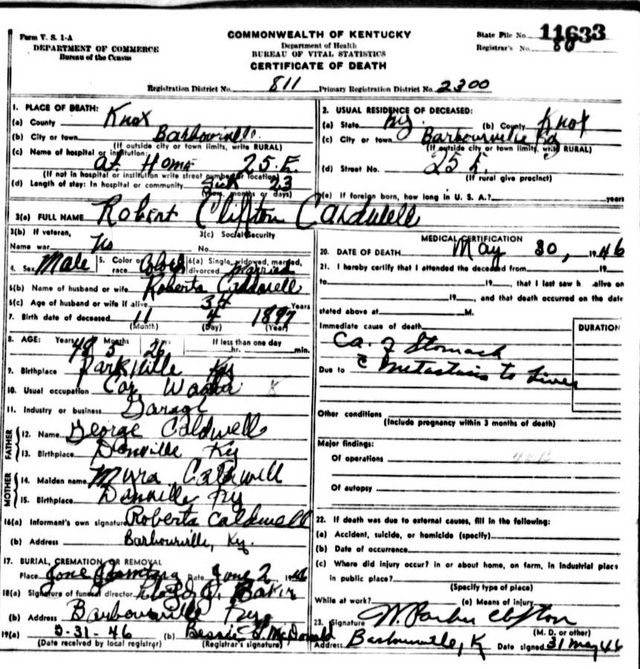 Form V. S. 1-A
DEPARTMENT OF COMMERCE
Bureau of the Census
COMMONWEALTH OF KENTUCKY
Department of Health
BUREAU OF VITAL STATISTICS
CERTIFICATE OF DEATH
State File No. 11633
Registrar's No. 80
Registration District No. 811 Primary Registration District No. 2300
1. PLACE OF DEATH:
(a) County Knox
(b) City or town Barbourville
(If outside city or town limits, write RURAL)
(c) Name of hospital or institution:
at Home 25 E.
(If not in hospital or institution write street number or location)
(d) Length of stay: In hospital or community 23
(years, months or days)
2. USUAL RESIDENCE OF DECEASED:
(a) State Ky (b) County Knox
(c) City or town Barbourville Ky
(If outside city or town limits, write RURAL)
(d) Street No. 25 E.
(If rural give precinct)
(e) If foreign born, how long in U. S. A.? years
3(a) FULL NAME Robert Clifton Cardwell
3(b) If veteran,
Name war No
3(c) Social Security
No.
4. Sex Male 5. Color or race Colored 6(a) Single, widowed, married, divorced married
6(b) Name of husband or wife Roberta Caldwell
6(c) Age of husband or wife if alive 34 Years
7. Birth date of deceased 11 4 1897
(Month) (Day) (Year)
8. AGE: Years 48 Months 5 Days 26 If less than one day
hr. min.
9. Birthplace Parksville Ky
10. Usual occupation Car Washer
11. Industry or business Garage
FATHER
12. Name George Caldwell
13. Birthplace Danville Ky
MOTHER
14. Maiden name Mura Caldwell
15. Birthplace Danville Ky
16(a) Informant's own signature Roberta Caldwell
(b) Address Barbourville, Ky.
17. BURIAL, CREMATION OR REMOVAL
Place Cemetery Date June 2 1946
18(a) Signature of funeral director Baker
(b) Address Barbourville Ky
19(a) 5-31-46 (b) Bessie G. McDonald
(Date received by local registrar) (Registrar's signature)
MEDICAL CERTIFICATION
20. DATE OF DEATH May 30, 1946
21. I hereby certify that I attended the deceased from 19
to 19 , that I last saw h alive on
19 , and that death occurred on the date
stated above at M.
Immediate cause of death
DURATION
Ca. of Stomach
Due to c Metastasis to Liver
Other conditions
(Include pregnancy within 3 months of death)
Major findings:
Of operations
Of autopsy
22. If death was due to external causes, fill in the following:
(a) Accident, suicide, or homicide (specify)
(b) Date of occurrence
(c) Where did injury occur? in or about home, on farm, in industrial place
in public place?
(Specify type of place)
While at work? (e) Means of injury
23. Signature
(M. D. or other)
Address Barbourville, K Date signed 31 May 46